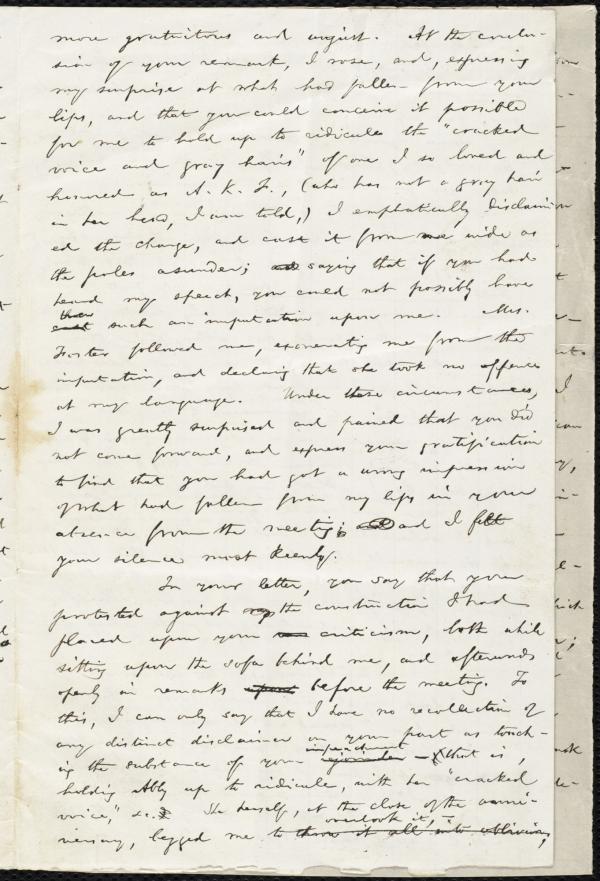 more gratuitous and unjust. At the conclu-
sion of your remark, I rose, and, expressing
my surprise at what had fallen from your
lips, and that you could conceive it possible
for me to hold up to ridicule the "cracked
voice and gray hairs" of one I so loved and
honored as A. K. F., (who has not a gray hair
in her head, I am told,) I emphatically disclaim-
ed the charge, and cast it from me wide as
the poles asunder; saying that if you had
heard my speech, you could not possibly have
thrown such an imputation upon me. Mrs.
Foster followed me, exonerating me from the
imputation, and declaring that she took no offence
at my language. Under these circumstances,
I was greatly surprised and pained that you did
not come forward, and express your gratification
to find that you had got a wrong impression
of what had fallen from my lips in your
absence from the meeting; and I felt
your silence most keenly.
In your letter, you say that you
protested against the construction I had
placed upon your criticism, both while
sitting upon the sofa behind me, and afterwards
openly in remarks before the meeting. To
this, I can only say that I have no recollection of
any distinct disclaimer on your part as touch-
ing the substance of your impeachment
rejoinder — (that is,
holding Abby up to ridicule, with her "cracked
voice," &c. She herself, at the close of the anni-
versary, begged me to overlook it, —
throw it all into oblivion,